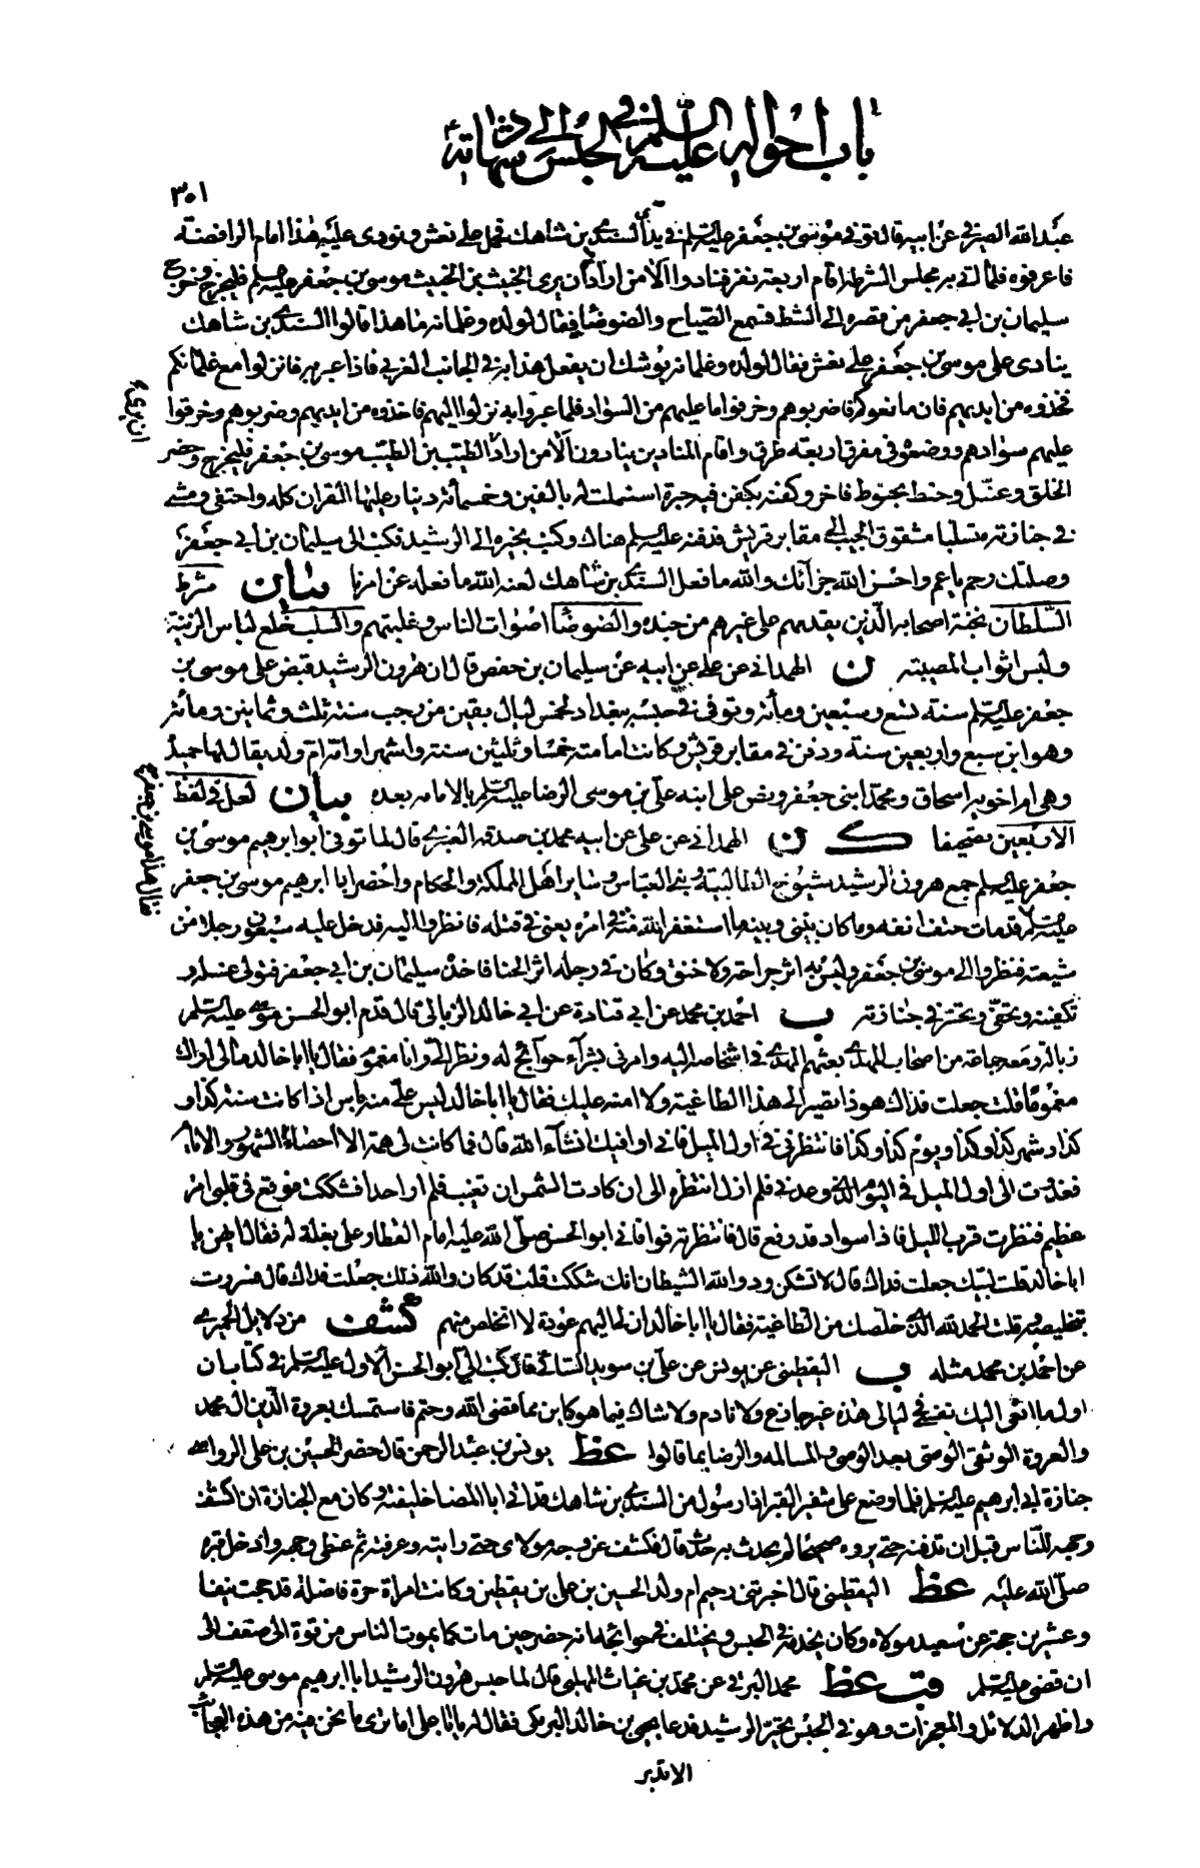 باب احواله عليه السلم في الحبس الى شهادته
٣٠١
عبد الله الصيرفي عن ابيه قال توفى موسى بن جعفر عليه السلم في يدى السندى بن شاهك فحمل على نعش ونودى عليه هذا امام الرافضة
فاعرفوه فلما اتى به مجلس الشرطة اقام اربعة نفر فنادوا الا من اراد ان يرى الخبيث بن الخبيث موسى بن جعفر فليخرج وخرج
سليمان بن ابى جعفر من قصره الى الشط فسمع الصياح والضوضا فقال لولده وغلمانه ما هذا قالوا السندى بن شاهك
ينادى على موسى بن جعفر على نعش فقال لولده وغلمانه يوشك ان يفعل هذا به في الجانب الغربي فاذا عبر به فانزلوا مع غلمانكم
فخذوه من ايديهم فان مانعوكم فاضربوهم وخرقوا ما عليهم من السواد فلما عبروا به نزلوا اليهم فاخذوه من ايديهم وضربوهم وخرقوا
عليهم سوادهم ووضعوه في مفرق اربعة طرق واقام المنادين ينادون الا من اراد الطيب بن الطيب موسى بن جعفر فليخرج وحضر
الخلق وغسل وحنط بحنوط فاخر وكفنه بكفن فيه حبرة استعملت له بالفين وخمسمائة دينار عليها القران كله واحتفى ومشى
في جنازته متسلبا مشقوق الجيب الى مقابر قريش فدفنه عليه السلم هناك وكتب بخبره الى الرشيد فكتب الى سليمان بن ابى جعفر
وصلتك رحم يا عم واحسن الله جزآئك والله ما فعل السندى بن شاهك لعنه الله ما فعله عن امرنا بيان شرط
السلطان نخبة اصحابه الذين يقدمهم على غيرهم من جنده والضوضا اصوات الناس وغلبتهم والسلب خلع لباس الزينة
ولبس اثواب المصيبة ن الهمدانى عن على عن ابيه عن سليمان بن حفص قال ان هرون الرشيد قبض على موسى بن
جعفر عليه السلم سنة تسع وسبعين ومأة وتوفى في حبسه ببغداد لخمس ليال بقين من رجب سنة ثلث وثمانين ومأة
وهو ابن سبع واربعين سنة ودفن في مقابر قريش وكانت امامته خمسا وثلثين سنة واشهرا وامه ام ولد يقال لها حميدة
وهى ام اخويه اسحاق ومحمد ابنى جعفر ونص على ابنه على بن موسى الرضا عليه السلم بالامامة بعده بيان لعل في لفظ
الاربعين تصحيفا ك ن الهمدانى عن على عن ابيه محمد بن صدقة العنبرى قال لما توفى ابو ابرهيم موسى بن
جعفر عليه السلم جمع هرون الرشيد شيوخ الطالبية وبنى العباس وساير اهل المملكة والحكام واحضر ابا ابرهيم موسى بن جعفر
عليه السلم قد مات حتف انفه وما كان بينى وبينه ما استغفر الله منه في امره يعنى في قتله فانظروا اليه فدخل عليه سبعون رجلا من
شيعته فنظروا الى موسى بن جعفر وليس به اثر جراحة ولا خنق وكان في رجله اثر الحنا فاخذه سليمان بن ابى جعفر فتولى غسله و
تكفينه وتحفى وتحسر في جنازته ب احمد بن محمد عن ابى قتادة عن ابى خالد الزبالى قال قدم ابو الحسن موسى عليه السلم
زبالة ومعه جماعة من اصحاب المهدى بعثهم المهدى في اشخاصه اليه وامرنى بشرآء حوآئج له ونظر الى وانا مغموم فقال يا ابا خالد ما لى اراك
مغموما قلت جعلت فداك هوذا تصير الى هذا الطاغية ولا امنه عليك فقال يا ابا خالد ليس على منه باس اذا كانت سنة كذا و
كذا وشهر كذا وكذا ويوم كذا وكذا فانتظرنى في اول الميل فانى اوافيك انشآء الله قال فما كانت لى همة الا احصاء الشهور والايام
فغدوت الى اول الميل في اليوم الذى وعدنى فلم ازل انتظره الى ان كادت الشمس ان تغيب فلم ار احدا فشككت فوقع في قلبى امر
عظيم فنظرت قرب الليل فاذا سواد قد رفع قال فانتظرته فوافانى ابو الحسن صلى الله عليه امام القطار على بغلة له فقال ايهن يا
ابا خالد قلت لبيك جعلت فداك قال لا تشكن ود والله الشيطان انك شككت قلت قد كان والله ذلك جعلت فداك قال فسررت
بتخليصه وقلت الحمد لله الذى خلصك من الطاغية فقال يا ابا خالد ان لى اليهم عودة لا اتخلص منهم كشف من دلايل الحميرى
عن احمد بن محمد مثله ب اليقطينى عن يونس عن على بن سويد السائى قال كتب الى ابو الحسن الاول عليه السلم في كتاب ان
اول ما انعى اليك نفسى في ليالى هذه غير جازع ولا نادم ولا شاك فيما هو كاين مما قضى الله وحتم فاستمسك بعروة الدين ال محمد
والعروة الوثقى الوصى بعد الوصى والمسالمة والرضا بما قالوا غط يونس بن عبد الرحمن قال حضر الحسين بن على الرواسى
جنازة ابى ابرهيم عليه السلم فلما وضع على شفير القبر اذا رسول من السندى بن شاهك قد اتى ابا المضا خليفته وكان مع الجنازة ان اكشف
وجهه للناس قبل ان تدفنه حتى يروه صحيحا لم يحدث به حدث قال فكشف عن وجه مولاى حتى رايته وعرفته ثم غطى وجهه وادخل قبره
صلى الله عليه غط اليقطينى قال اخبرتنى رحيم ام ولد الحسين بن على بن يقطين وكانت امراة حرة فاضلة قد حجت نيفا
وعشرين حجة عن سعيد مولاه وكان يخدمه في الحبس ويختلف في حوائجه انه حضر حين مات كما يموت الناس من قوة الى ضعف الى
ان قضى عليه السلم قب غط محمد البرقى عن محمد بن غياث المهلبى قال لما حبس هرون الرشيد ابا ابرهيم موسى عليه السلم
واظهر الدلائل والمعجزات وهو في الحبس تحير الرشيد فدعا يحيى بن خالد البرمكى فقال له يا ابا على اما ترى ما نحن فيه من هذه العجائب
الا تدبر
ان يرى
فقال هذا موسى بن جعفر